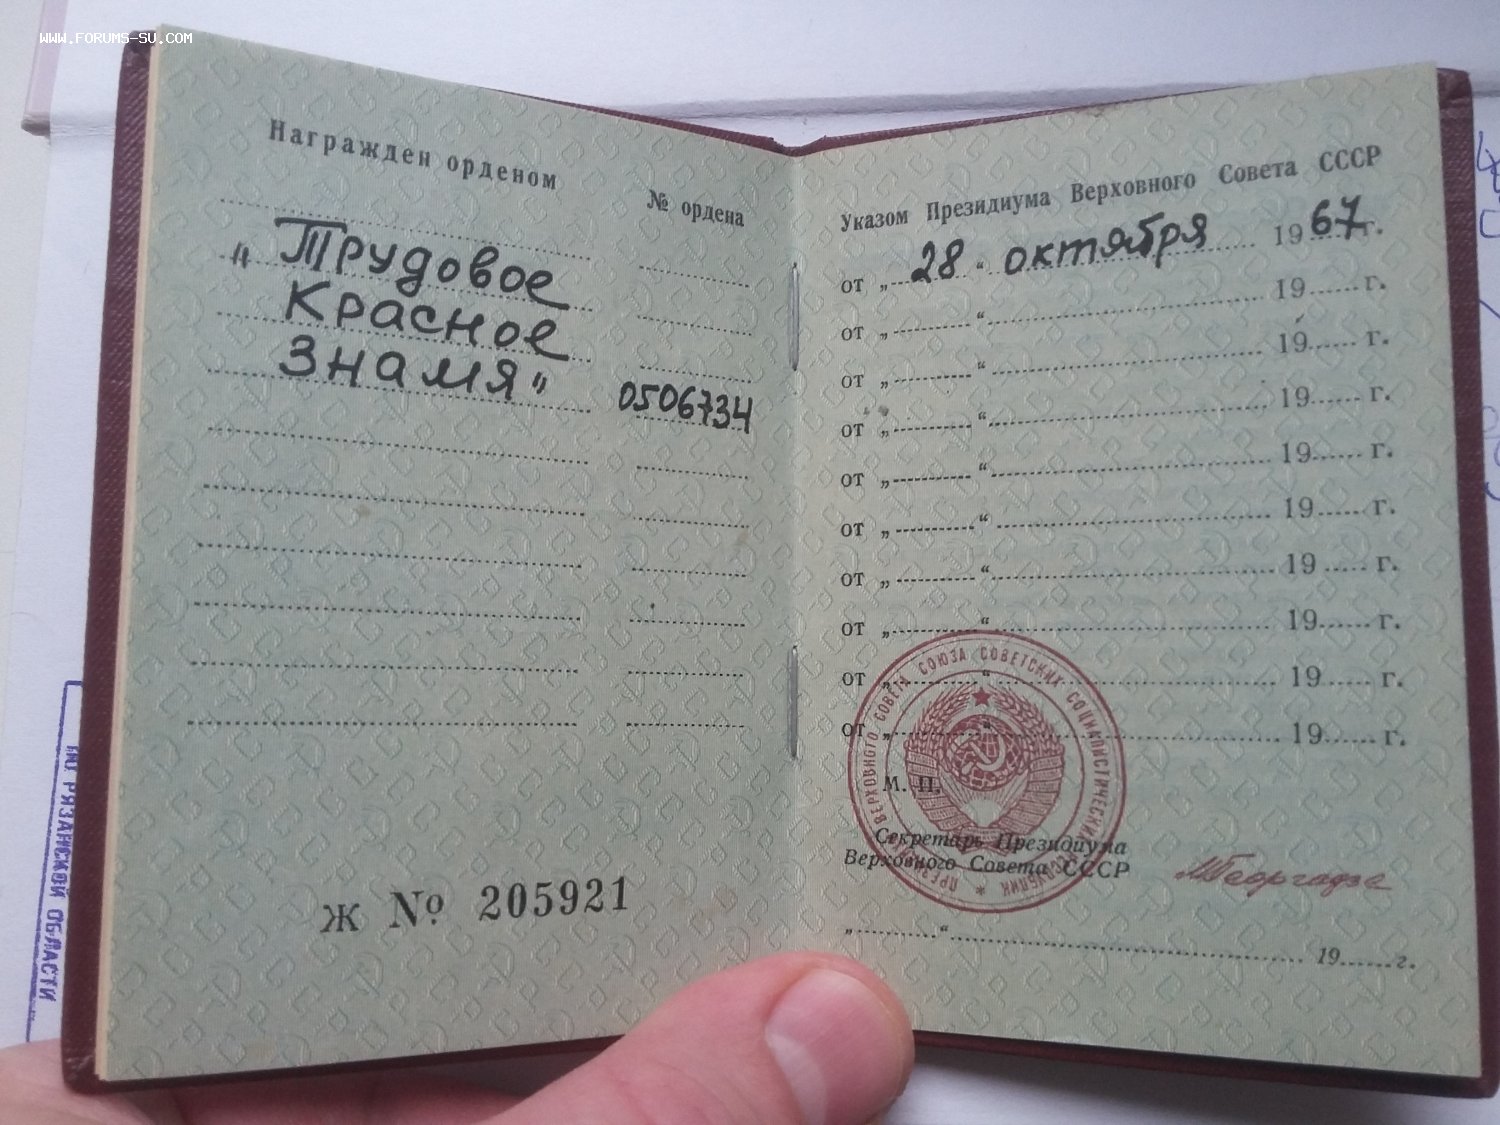 WWW.FORUMS-SU.COM
Награжден орденом
№ ордена
„Трудовое
Красное
Знамя"
0506734
Ж № 205921
Указом Президиума Верховного Совета СССР
от „28“ октября 1967 г.
от „ “ 19 г.
от „ “ 19 г.
от „ “ 19 г.
от „ “ 19 г.
от „ “ 19 г.
от „ “ 19 г.
от „ “ 19 г.
от „ “ 19 г.
от „ “ 19 г.
М. П.
ПРЕЗИДИУМ ВЕРХОВНОГО СОВЕТА СОЮЗА СОВЕТСКИХ СОЦИАЛИСТИЧЕСКИХ РЕСПУБЛИК *
Секретарь Президиума
Верховного Совета СССР
МГеоргадзе
„ “ 19 г.
РЯЗАНСКОЙ ОБЛАСТИ